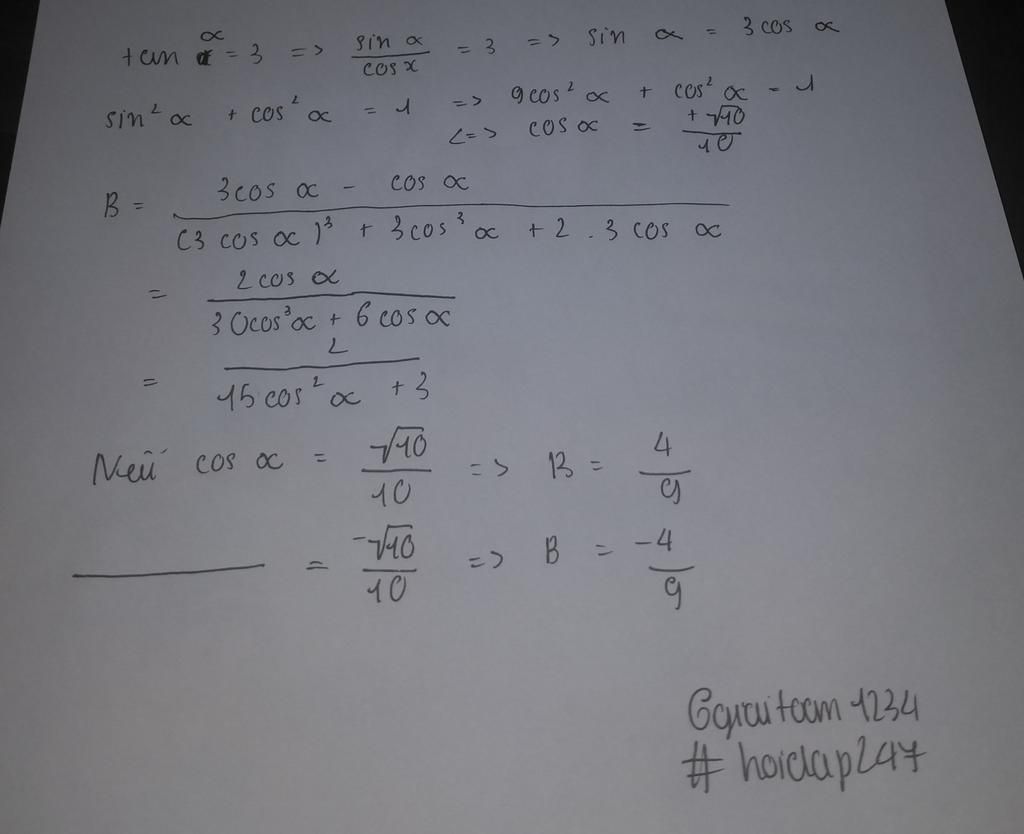 tan α = 3 => sin α / cos x = 3 => sin α = 3 cos α
sin² α + cos² α = 1 => 9cos² α + cos² α = 1
<=> cos α = ±√10 / 10
B = 3 cos α - cos α / (3 cos α)³ + 3cos³ α + 2 . 3 cos α
= 2 cos α / 30cos³α + 6 cos α
= 2 / 15 cos² α + 3
Nếu cos α = √10 / 10 => B = 4 / 9
= -√10 / 10 => B = -4 / 9
1234
# hoidap247